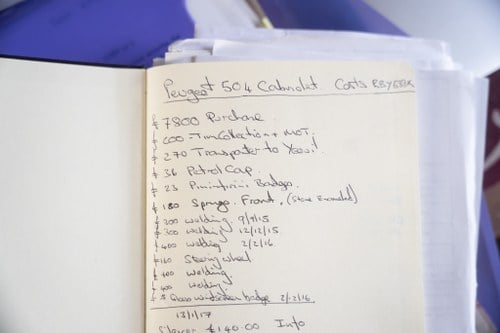 Peugeot 504 Cabriolet Costs
£ 7800 Purchase
£ 600 - Tim Collection + MOT.
£ 270 Transporter to Yeovil
£ 36 Petrol Cap.
£ 23 Pininfarina Badge.
£ 180 Springs. Front. (Stone Enameled)
£ 200 welding. 9/9/15
£ 300 welding 12/12/15
£ 400 welding 2/2/16
£ 160 Steering wheel
£ 400 welding.
£ 400 welding.
badge 2/2/16
13/1/17
£140.00 Info